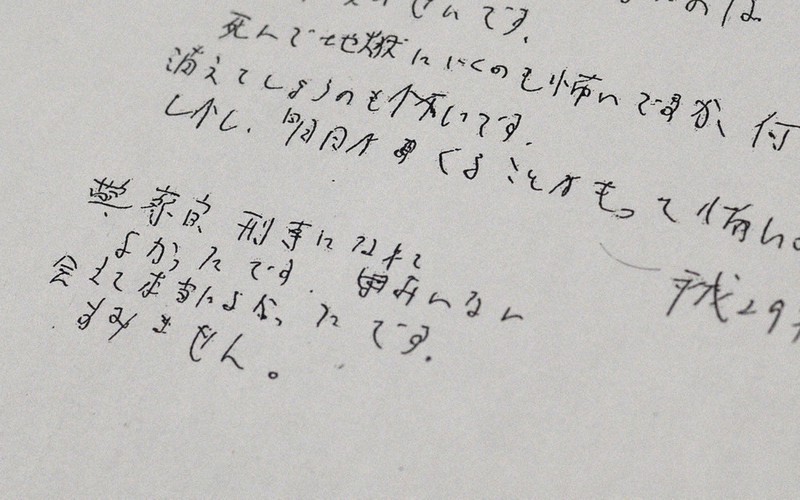 せんです。
死んで地獄にいくのも怖いですが、何
消えてしまうのも怖いです。
しかし、明日がまたくることがもっと怖い。
平成29
警察官、刑事になれて
よかったです。
会えて本当によかったです。
すみません。